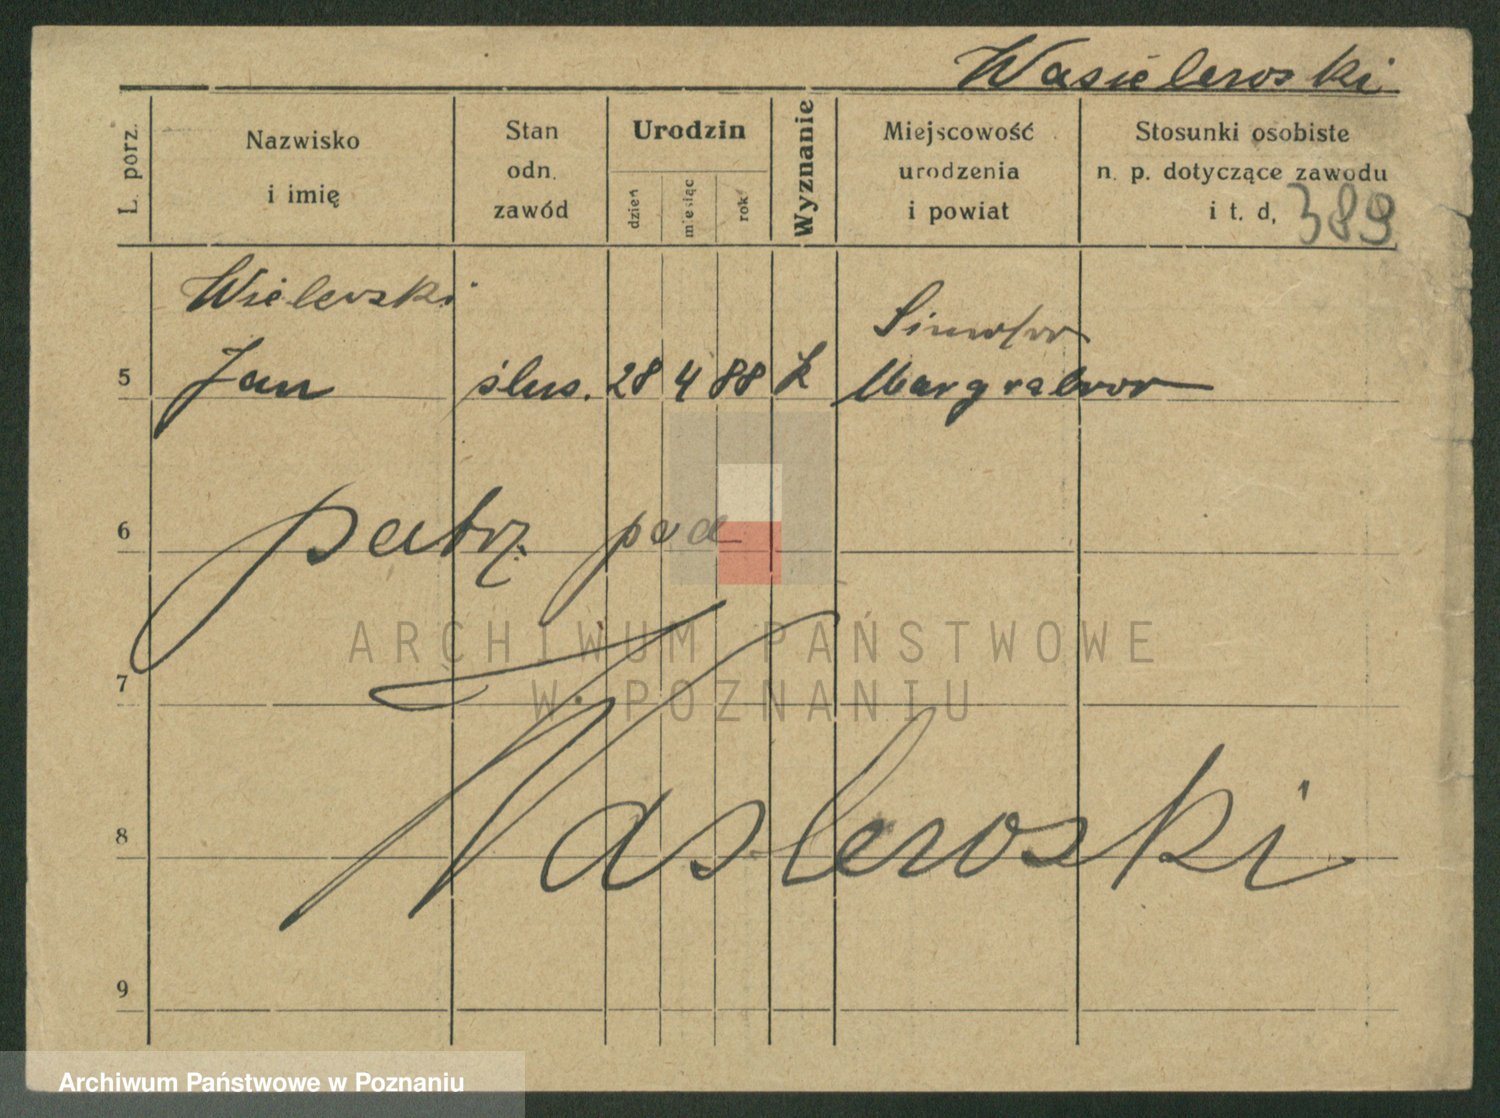 Wasielewski
L. porz.
Nazwisko
i imię
Stan
odn.
zawód
Urodzin
dzień
miesiąc
rok
Wyznanie
Miejscowość
urodzenia
i powiat
Stosunki osobiste
n. p. dotyczące zawodu
i t. d,
389
Wielewski
5 Jan ślus. 28 4 88 k Margrabow
6 patrz pod
7
8 Waslewski
9
ARCHIWUM PAŃSTWOWE
W POZNANIU
Archiwum Państwowe w Poznaniu